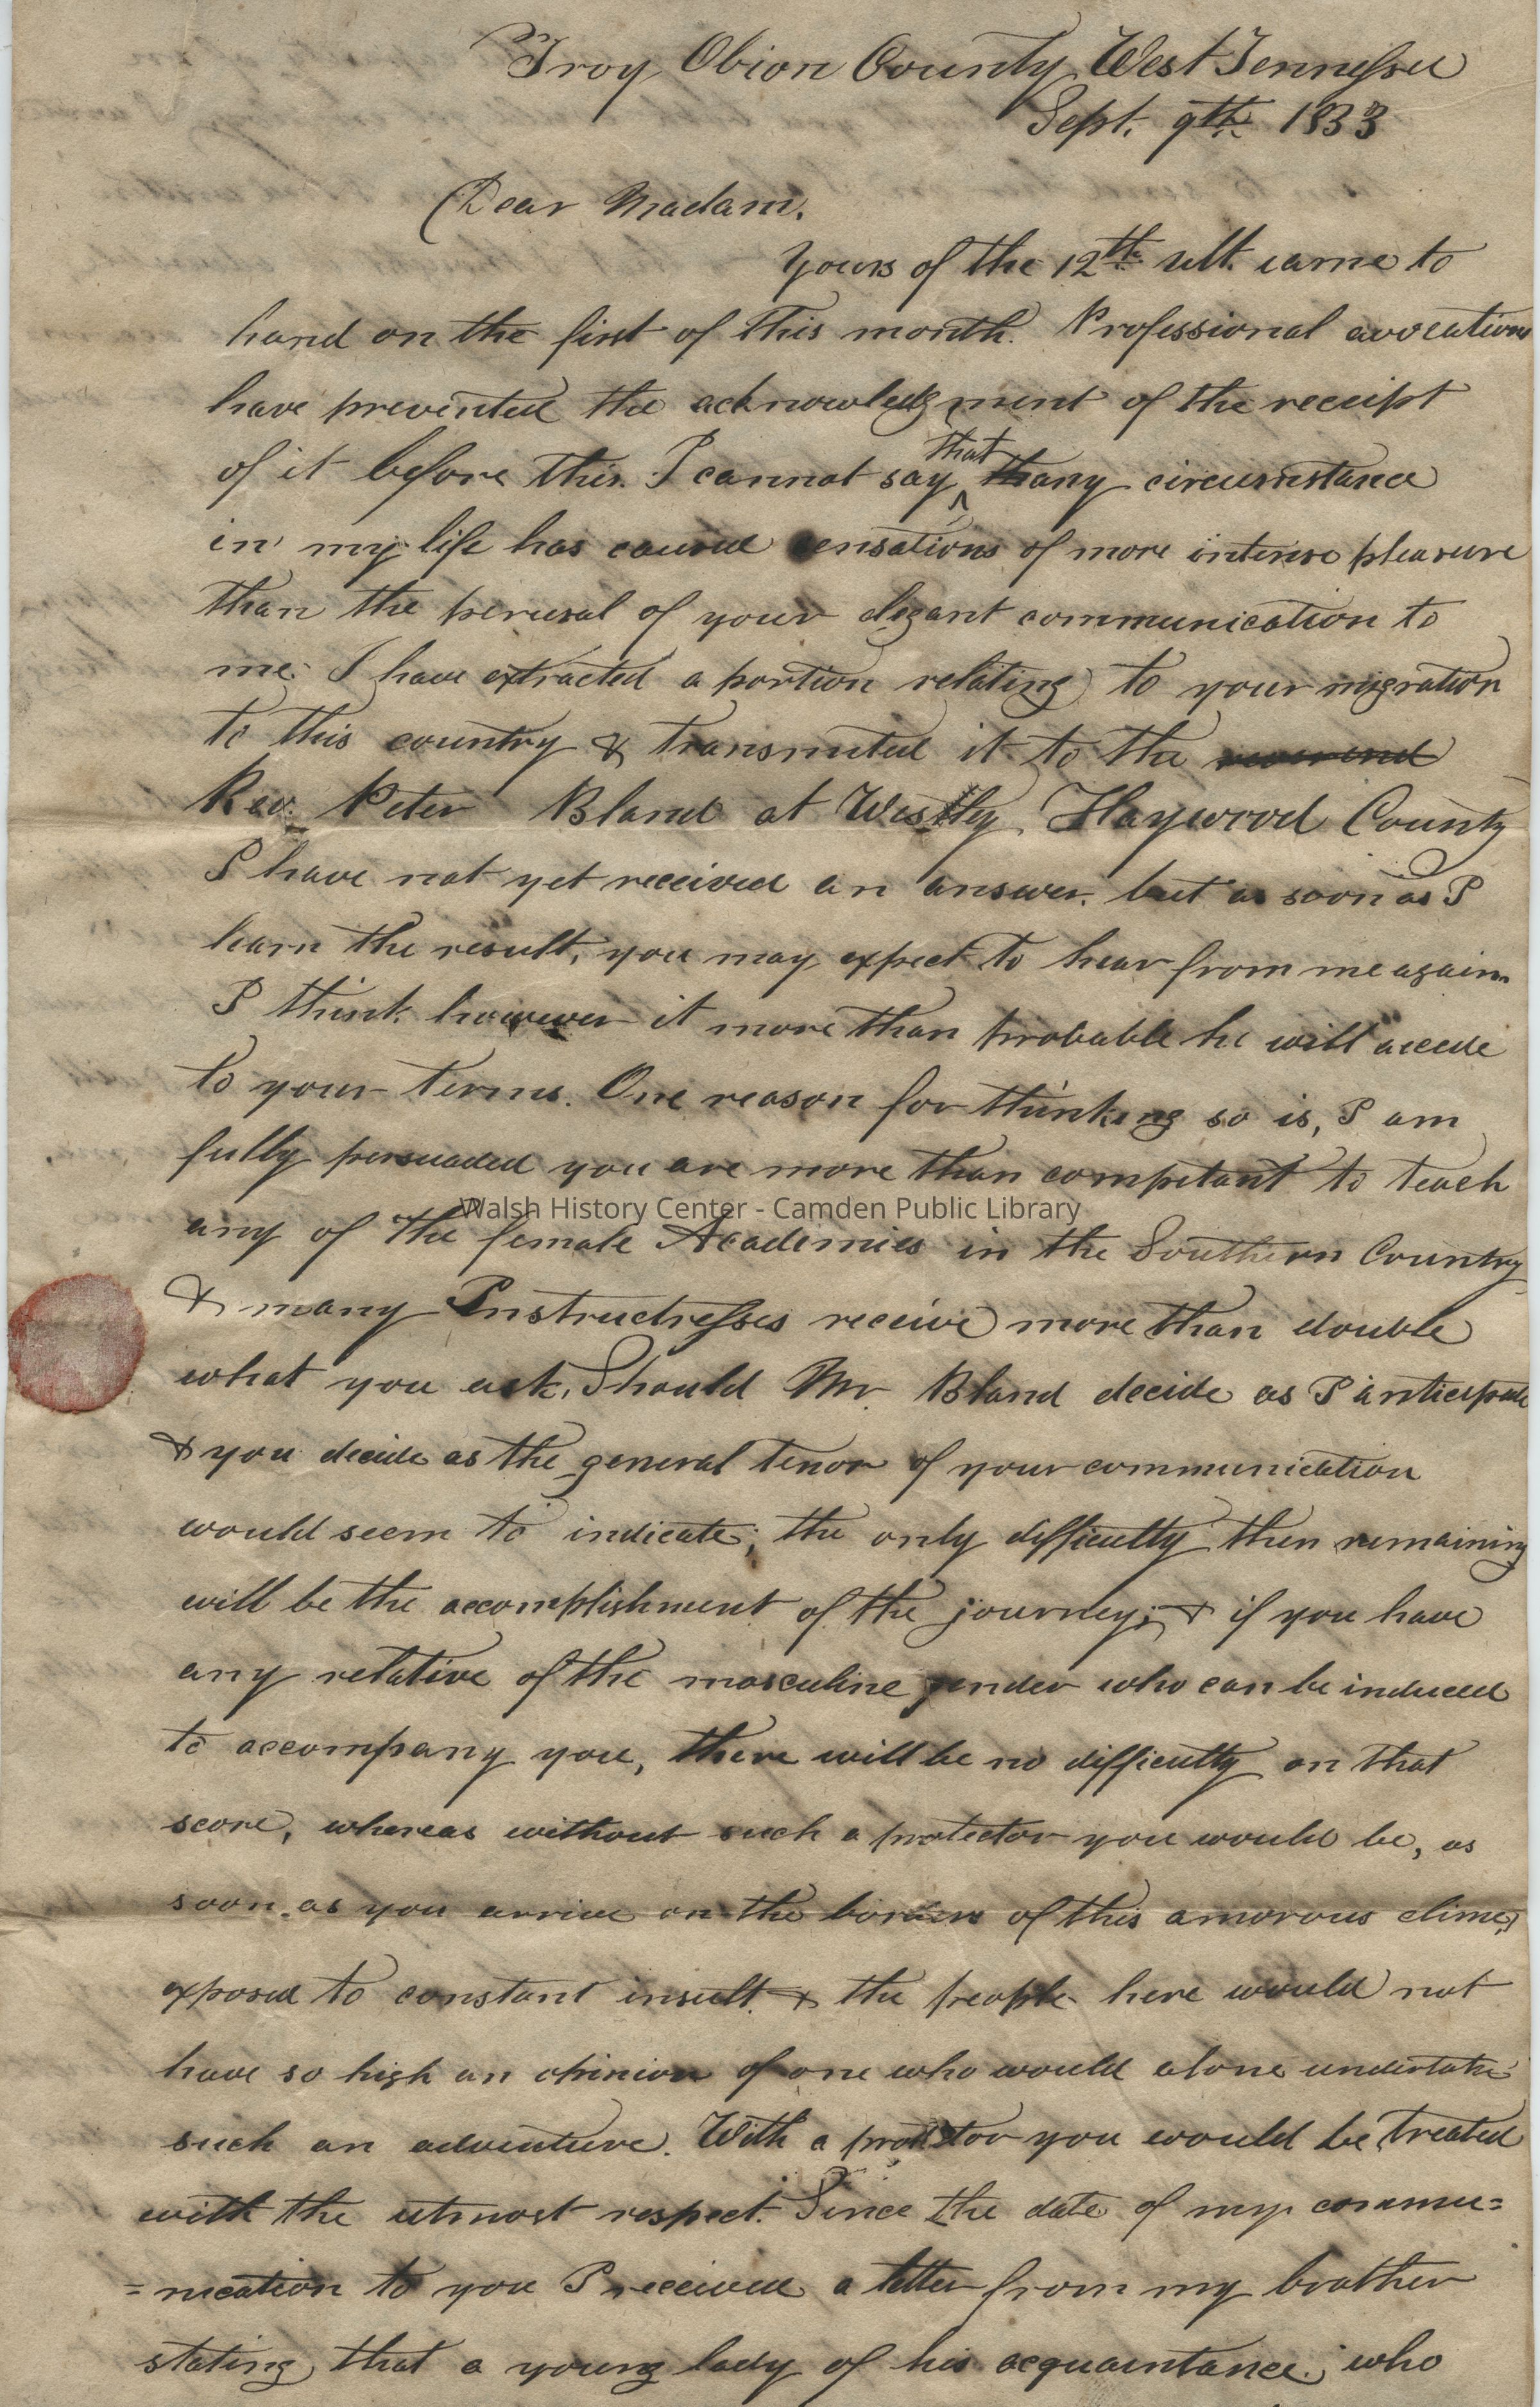 Troy Obion County West Tennessee
Sept. 9th 1833
Dear Madam.
Yours of the 12th ult. came to
hand on the first of this month. Professional avocations
have prevented the acknowledgment of the receipt
of it before this. I cannot say that any circumstance
in my life has caused sensations of more intense pleasure
than the perusal of your elegant communication to
me. I have extracted a portion relating to your migration
to this country & transmited it to the reverend
Rev. Peter Bland at Westly Haywood County
I have not yet received an answer. but as soon as I
learn the result, you may expect to hear from me again.
I think however it more than probable he will accede
to your terms. One reason for thinking so is, I am
fully persuaded you are more than competant to teach
Walsh History Center - Camden Public Library
any of the female Academies in the Southern Country
& many Instructresses receive more than double
what you ask. Should Mr. Bland decide as I anticipate
& you decide as the general tenor of your communication
would seem to indicate; the only difficulty then remaining
will be the accomplishment of the journey; & if you have
any relative of the masculine gender who can be induced
to accompany you, there will be no difficulty on that
score, whereas without such a protector you would be, as
soon as you arrive on the borders of this amorous clime,
exposed to constant insult & the people here would not
have so high an opinion of one who would alone undertake
such an adventure. With a protector you would be treated
with the utmost respect. Since the date of my commu=
=nication to you I received a letter from my brother
stating that a young lady of his acquaintance, who